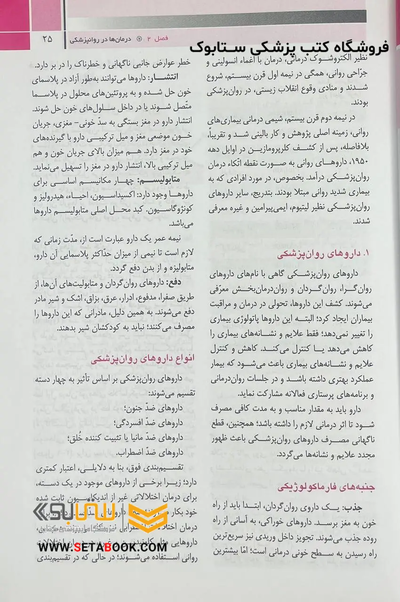 فصل ۲ ◉ درمان‌ها در روانپزشکی
۲۵
فروشگاه کتب پزشکی ستابوک
نظیر الکتروشوک درمانی، درمان با اغماء انسولینی و
جرّاحی روانی، همگی در نیمه اول قرن بیستم، شروع
شدند و منادی وقوع انقلاب زیستی، در روان‌پزشکی
بودند.
در نیمه دوم قرن بیستم، شیمی درمانی بیماری‌های
روانی، زمینه اصلی پژوهش و کار بالینی شد و تقریباً،
بلافاصله، پس از کشف کلرپرومازین در اوایل دهه
۱۹۵۰، داروهای روانی به صورت نقطه اتّکاء درمان
روان‌پزشکی درآمد. بخصوص، در مورد افرادی که به
بیماری شدید روانی مبتلا بودند. بتدریج، سایر داروهای
روان‌پزشکی نظیر لیتیوم، ایمی‌پیرامین و غیره معرفی
شدند.
۱. داروهای روان‌پزشکی
داروهای روان‌پزشکی گاهی با نام‌های داروهای
روان‌گرا، روان‌گردان و روان‌درمان‌بخش معرّفی
می‌شوند. کشف این داروها، تحولی در درمان و مراقبت
بیماران ایجاد کرد؛ البتـه این داروها پاتولوژی بیماری
را تغییر نمی‌دهد؛ فقط علایم و نشانه‌های بیماری را
کاهش می‌دهد یـا کنترل می‌کند. کاهش و کنترل
علایم و نشانه‌های بیماری باعث می‌شود که بیمار
عملکرد بهتری داشته باشد و در جلسات روان‌درمانی
و برنامه‌های پرستاری فعالانه مشارکت نماید.
دارو باید به مقدار مناسب و به مدت کافی مصرف
شود تا اثر درمانی لازم را داشته باشد؛ همچنین، قطع
ناگهانی مصـرف داروهای روان‌پزشکی باعث ظهور
مجدد علایم و نشانه‌ها می‌گردد.
جنبه‌های فارماکولوژیکی
جذب: یـک داروی روان‌گردان، ابتدا باید از راه
خون به مغز برسد. داروهای خوراکی، به آسانی از راه
روده جذب می‌شوند. تجویز داخل وریدی نیز سریع‌ترین
راه رسیدن به سطح خونی درمانی است؛ امّا بیشترین
خطر عوارض جانبی ناگهانی و خطرناک را در بر دارد.
انتشـار: داروها می‌توانند به‌طور آزاد در پلاسمای
خون حل شده و به پروتئین‌های محلول در پلاسما
متّصل شوند یا در داخل سـلول‌های خون حل شوند.
انتشار دارو در مغز بستگی به سدّ خونی-مغزی، جریان
خـون موضعی مغز و میل ترکیبی دارو با گیرنده‌های
خود در مغز دارد. هـم میزان بالای جریان خون و هم
میل ترکیبی بالا، انتشار دارو در مغز را تسهیل می‌نماید.
متابولیسـم: چهـار مکانیسـم اساسـی برای
داروهـا وجود دارد: اکسیداسیون، احیـاء، هیدرولیز و
کونژوگاسیون. کبد محل اصلی متابولیسم داروها
می‌باشد.
نیمه عمر یک دارو عبارت است از، مدّت زمانی که
لازم است تا نیمی از میزان حدّاکثر پلاسمایی آن دارو،
متابولیزه و از بدن دفع گردد.
دفع: داروهای روان‌گردان و متابولیت‌های آن‌ها، از
طریق صفرا، مدفوع، ادرار، عرق، بزاق، اشک و شیر مادر
دفع می‌شوند. به همین دلیل، مادرانی که این داروها را
مصرف می کنند؛ نباید به کودکشان شیر بدهند.
انواع داروهای روان‌پزشکی
داروهای روان‌پزشکی بر اساس تأثیر به چهار دسته
تقسیم می‌شوند:
داروهای ضدّ جنون؛
داروهای ضدّ افسردگی؛
داروهای ضدّ مانیا یا تثبیت کننده خُلق؛
داروهای ضدّ اضطراب.
تقسیم‌بندی فوق، بنا به دلایلـی، اعتبار کمتری
دارد؛ زیـرا برخی از داروهای موجود در یک دسته،
برای درمان اختلالاتی غیر از اندیکاسیون ثابت شده
روانی استفاده می‌شوند؛ در حالی که در تقسیم‌بندی
ستابوک
WWW.SETABOOK.COM